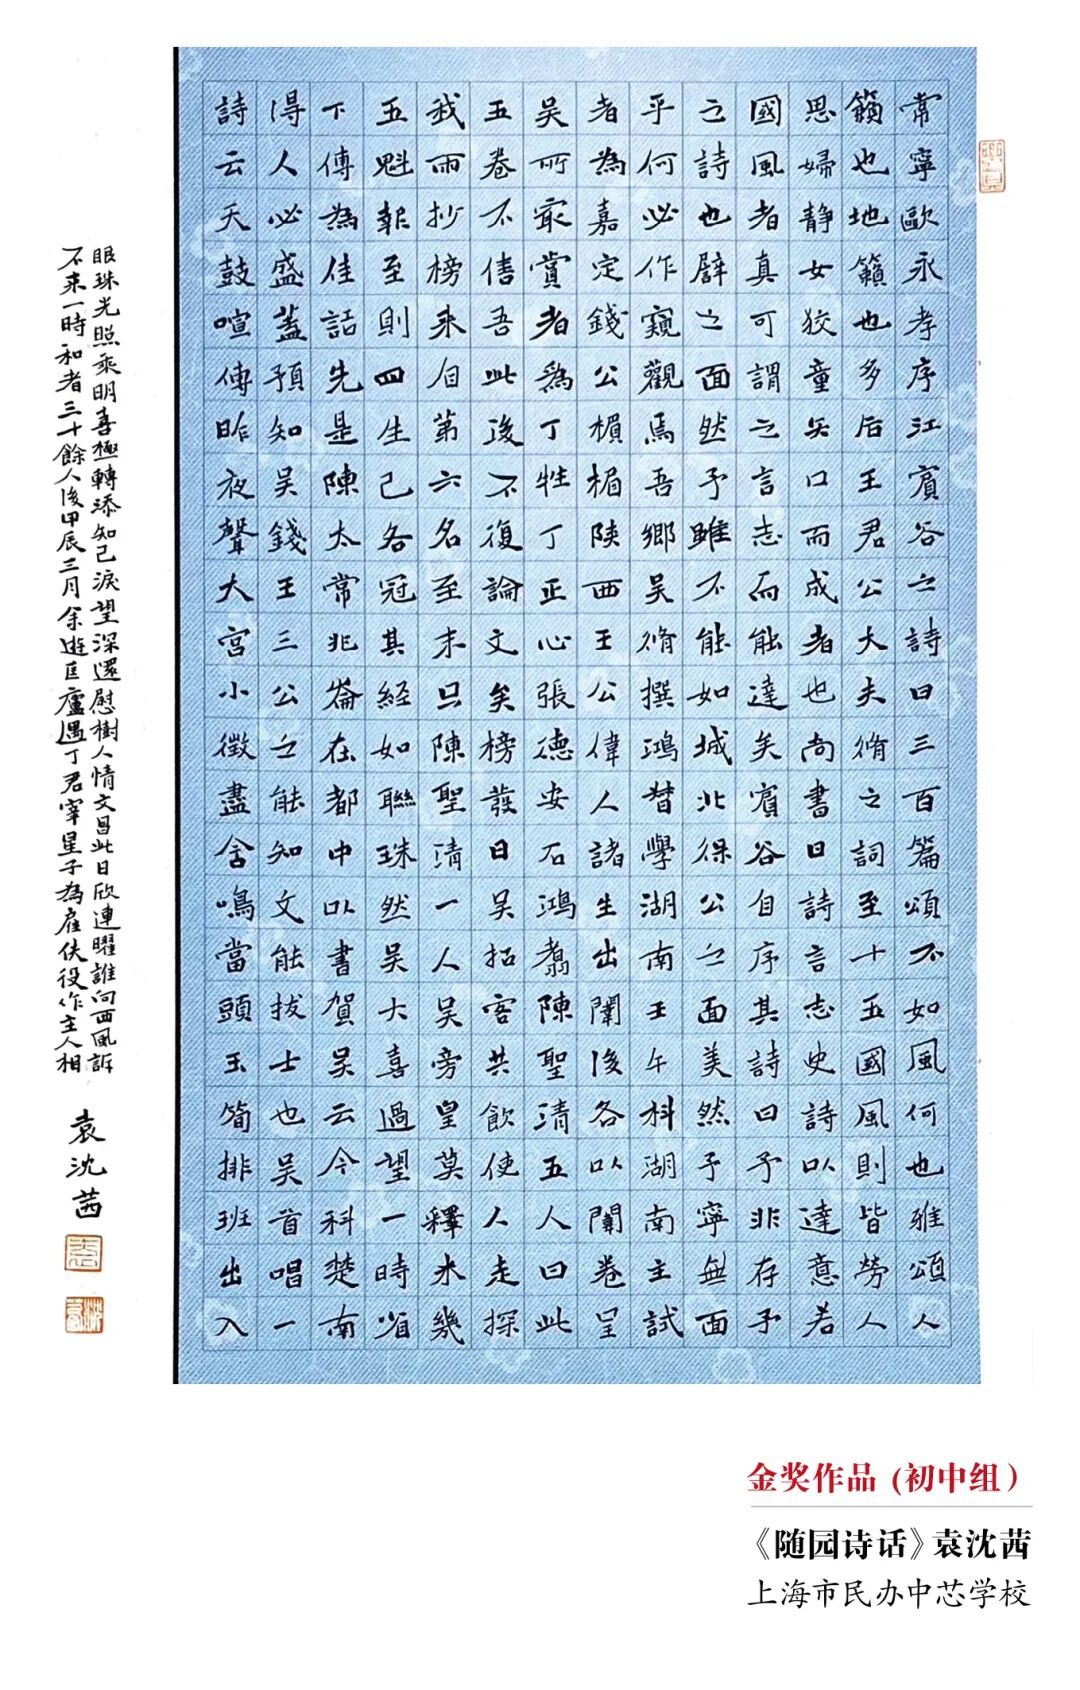 常寧歐永孝序江賓谷之詩曰三百篇頌不如風何也雅頌人
籟也地籟也多后王君公大夫脩之詞至十五國風則皆勞人
思婦靜女狡童矢口而成者也尚書曰詩言志史詩以達意若
國風者真可謂之言志而能達矣賓谷自序其詩曰予非存予
之詩也辟之面然予雖不能如城北徐公之面美然予寧無面
乎何必作窺觀焉吾鄉吳脩撰鴻督學湖南壬午科湖南主試
者為嘉定錢公楨楣陝西王公偉人諸生出闈後各以闈卷呈
吳所最賞者為丁牲丁正心張德安石鴻翥陳聖清五人曰此
五卷不售吾此後不復論文矣榜發日吳招客共飲使人走探
我雨抄榜来自第六名至末只陳聖清一人吳旁皇莫釋未幾
五魁報至則四生已各冠其經如聯珠然吳大喜過望一時省
下傳為佳話先是陳太常兆崙在都中以書賀吳云今科楚南
得人必盛蓋預知吳錢王三公之能知文能拔士也吳首唱一
詩云天鼓喧傳昨夜聲大宮小徵盡含鳴當頭玉筍排班出入
眼珠光照乘明喜極轉添知己淚望深還慰樹人情文昌此日欣連曜誰向西風訴
不来一時和者三十餘人後甲辰三月余遊匡廬遇丁君宰星子為雇伕役作主人相
袁沈茜
金奖作品 (初中组)
《随园诗话》袁沈茜
上海市民办中芯学校